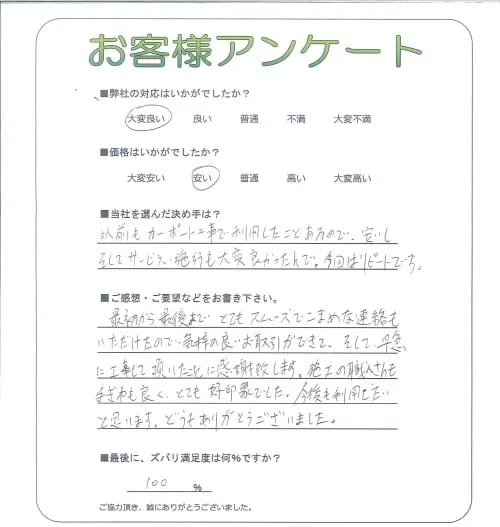 お客様アンケート
■弊社の対応はいかがでしたか？
大変良い 良い 普通 不満 大変不満
■価格はいかがでしたか？
大変安い 安い 普通 高い 大変高い
■当社を選んだ決め手は？
以前もカーポート工事で利用したことあるので、安いし
そしてサービス・施行も大変良かったんで。今回はリピートです。
■ご感想・ご要望などをお書き下さい。
最初から最後まで とてもスムーズでこまめな連絡も
いただけたので気持の良いお取引ができて、そして、早急
に工事して頂いたことに感謝致します。施工の職人さんも
手ぎわも良く、とても好印象でした。今後も利用したい
と思います。どうもありがとうございました。
■最後に、ズバリ満足度は何％ですか？
100 %
ご協力頂き、誠にありがとうございました。